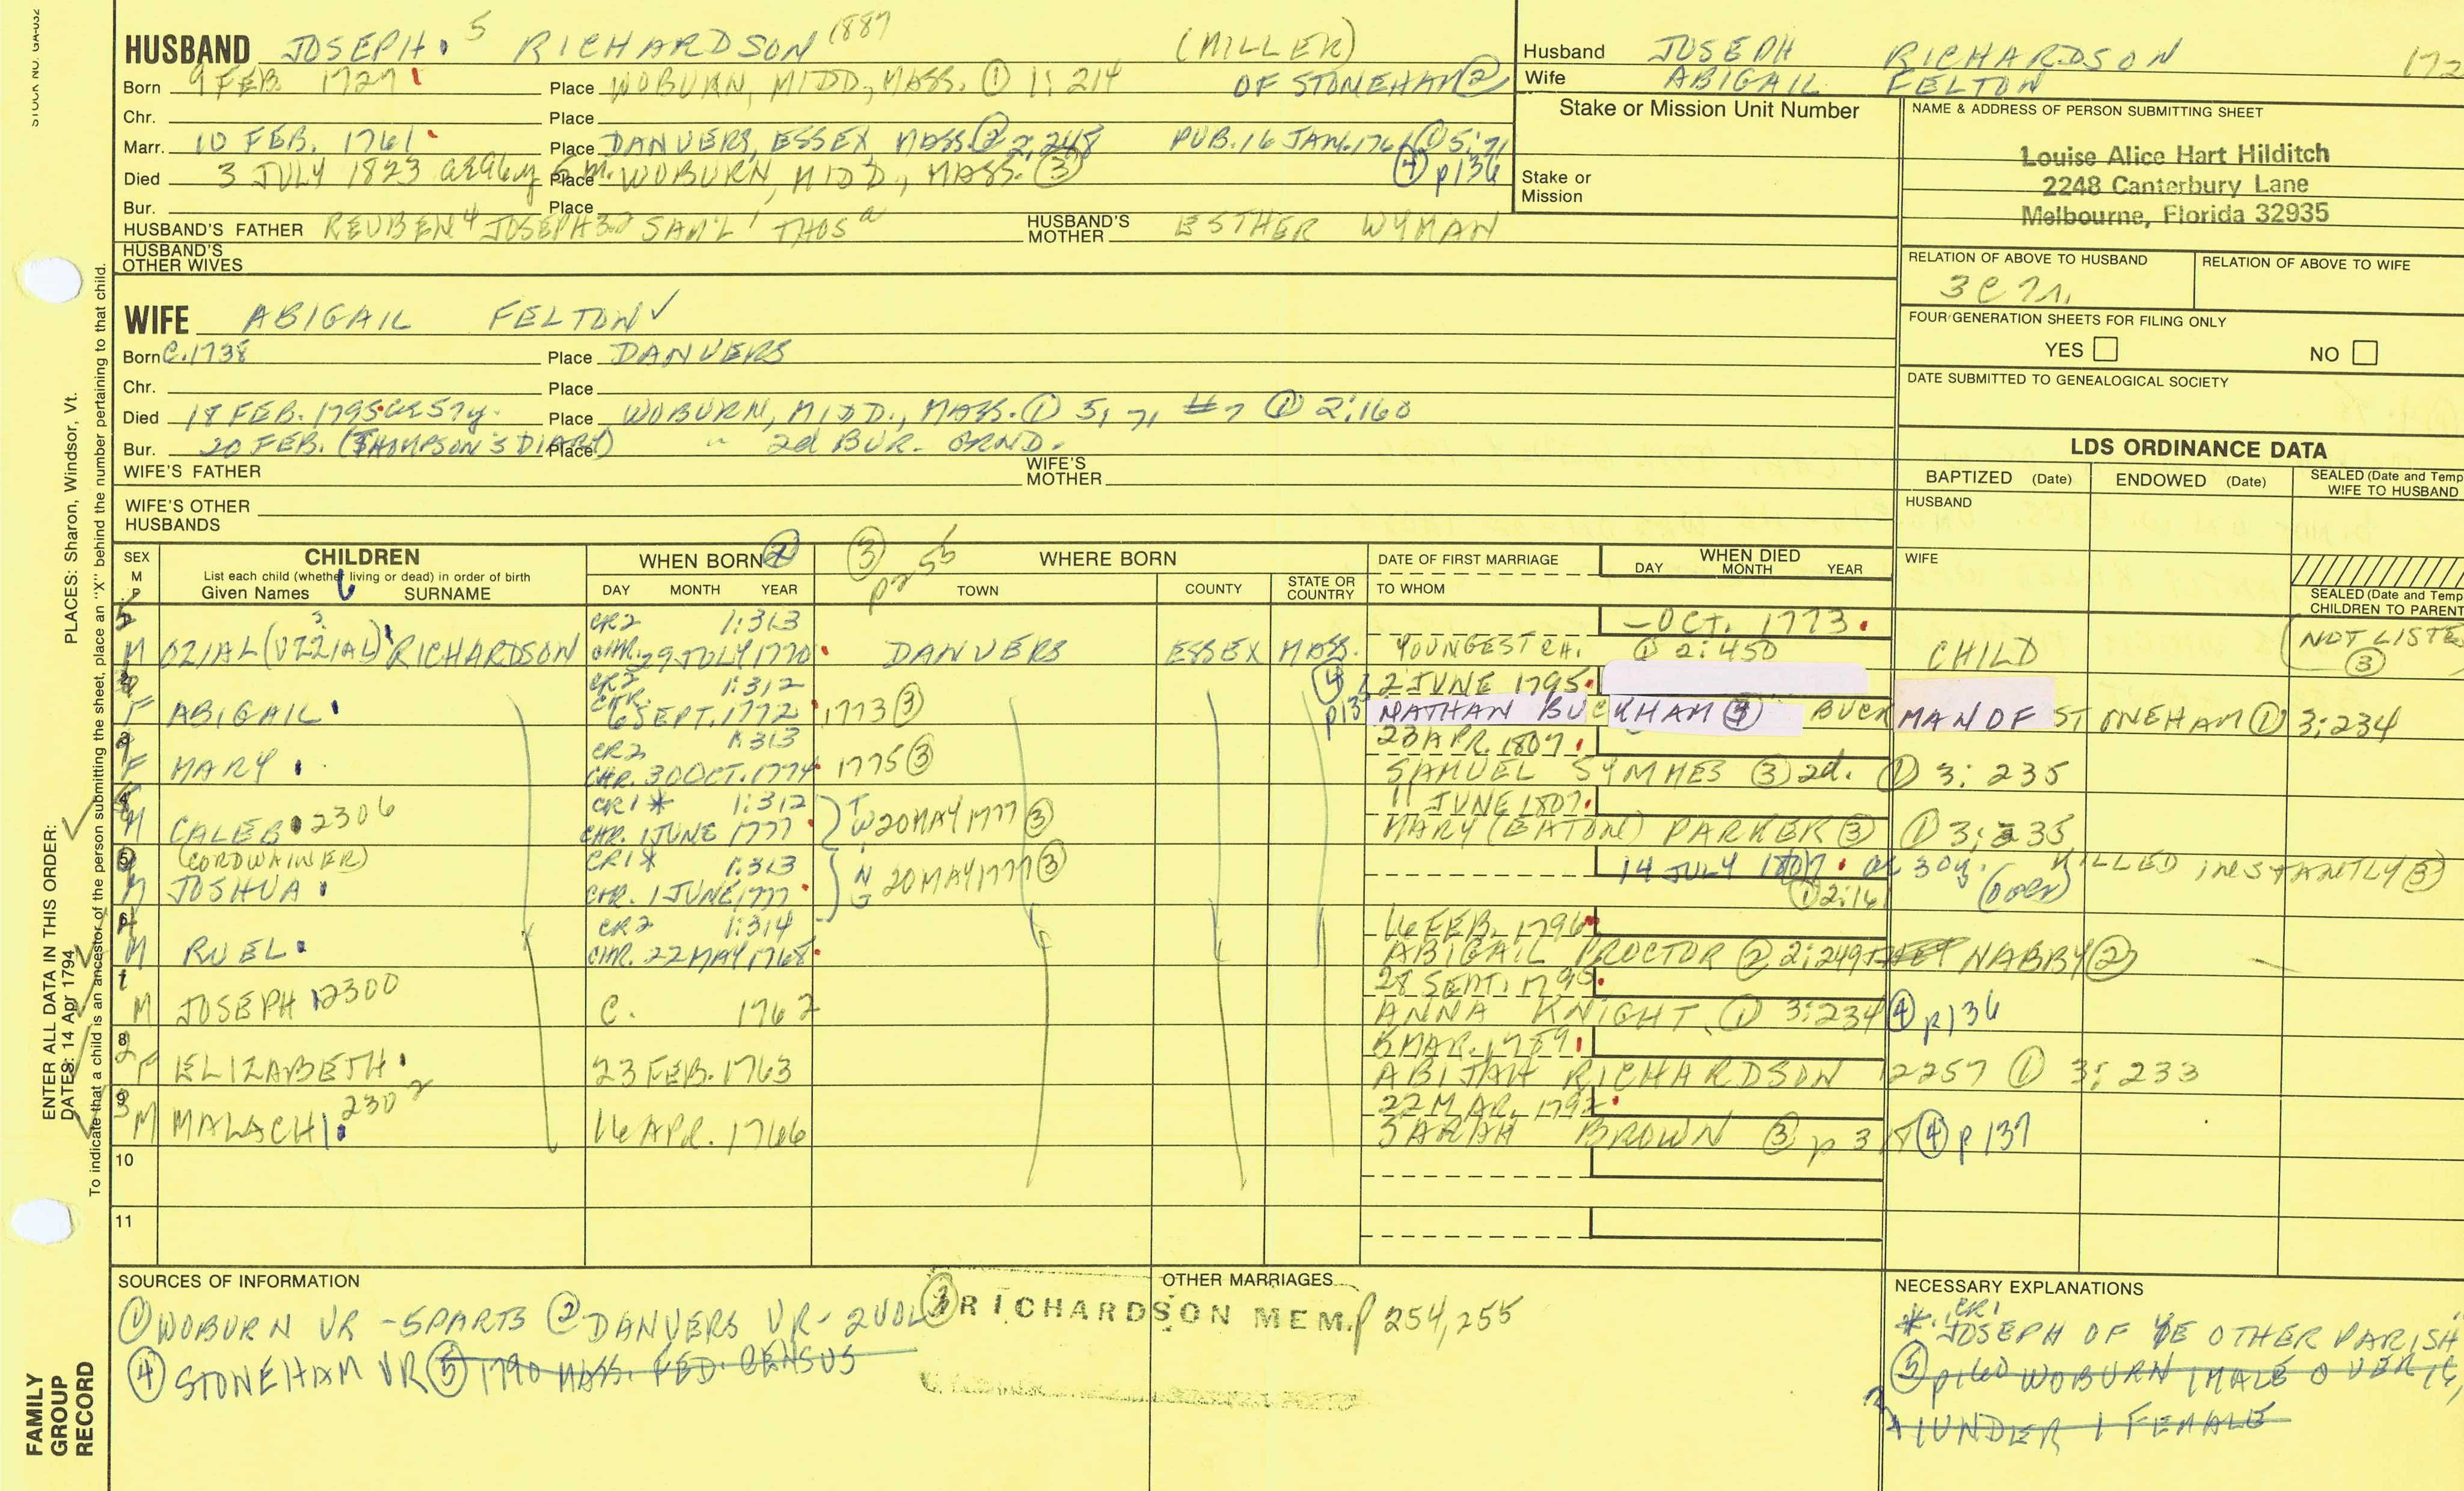 STOCK NO. GA-032
HUSBAND JOSEPH 5 RICHARDSON 1887 (MILLER)
Born 9 FEB. 1727 Place WOBURN, MIDD, MASS. ① 1: 214 OF STONEHAM ②
Chr. Place
Marr. 10 FEB. 1761 Place DANVERS, ESSEX, MASS. ② 2,248 PUB. 16 JAN. 1761 ① 5:71
Died 3 JULY 1823 Place WOBURN, MIDD., MASS. ③ ④ p136
Bur. Place
HUSBAND'S FATHER REUBEN 4 JOSEPH 3 SAM'L 1 THOS a HUSBAND'S MOTHER ESTHER WYMAN
HUSBAND'S OTHER WIVES
WIFE ABIGAIL FELTON ✓
Born C. 1738 Place DANVERS
Chr. Place
Died 18 FEB. 1795 ae 57y. Place WOBURN, MIDD., MASS. ① 5, 71 #7 ① 2:160
Bur. 20 FEB. (THOMPSON'S DIARY) Place " 2d BUR. GRND.
WIFE'S FATHER WIFE'S MOTHER
WIFE'S OTHER HUSBANDS
Husband JOSEPH RICHARDSON 172
Wife ABIGAIL FELTON
Stake or Mission Unit Number
Stake or Mission
NAME & ADDRESS OF PERSON SUBMITTING SHEET
Louise Alice Hart Hilditch
2248 Canterbury Lane
Melbourne, Florida 32935
RELATION OF ABOVE TO HUSBAND RELATION OF ABOVE TO WIFE
FOUR GENERATION SHEETS FOR FILING ONLY
YES NO
DATE SUBMITTED TO GENEALOGICAL SOCIETY
LDS ORDINANCE DATA
BAPTIZED (Date) ENDOWED (Date) SEALED (Date and Temp
WIFE TO HUSBAND
HUSBAND
WIFE
SEALED (Date and Temp
CHILDREN TO PARENT
SEX M F CHILDREN WHEN BORN ② ③ p255 WHERE BORN DATE OF FIRST MARRIAGE WHEN DIED
List each child (whether living or dead) in order of birth
Given Names SURNAME DAY MONTH YEAR TOWN COUNTY STATE OR COUNTRY TO WHOM DAY MONTH YEAR
CR2 1:313 – OCT. 1773
M OZIAL (UZZIAL) RICHARDSON CHR. 29 JULY 1770 DANVERS ESSEX MASS. YOUNGEST CH. ① 2:450 CHILD (NOT LISTE ③
CR2 1:312 ④ 2 JUNE 1795
F ABIGAIL CHR. 6 SEPT. 1772 1773 ③ NATHAN BUCKHAM ④ BUCKMAN OF STONEHAM ① 3:234
CR2 1:313 23 APR. 1807
F MARY CHR. 30 OCT. 1774 1775 ③ SAMUEL SYMMES ③ 2d. ① 3: 235
CR1 * 1:312 11 JUNE 1807
M CALEB 2306 CHR. 1 JUNE 1777 20 MAY 1777 ③ MARY (EATON) PARKER ③ ① 3:235
(CORDWAINER) CR1 * 1:313 14 JULY 1807 ae 30y. KILLED INSTANTLY ③
M JOSHUA CHR. 1 JUNE 1777 20 MAY 1777 ③ ① 2:161
CR2 1:314 16 FEB. 1796
M RUEL CHR. 22 MAY 1768 ABIGAIL PROCTOR ② 2:249 NABBY ②
28 SEPT. 1795
M JOSEPH 2300 C. 1762 ANNA KNIGHT ① 3:234 ④ p136
5 MAR. 1789
F ELIZABETH 23 FEB. 1763 ABIJAH RICHARDSON 2257 ① 3: 233
22 MAR. 1792
M MALACHI 2302 16 APR. 1766 SARAH BROWN ③ ④ p137
10
11
SOURCES OF INFORMATION
① WOBURN VR - 5 PARTS ② DANVERS VR - 2 VOL ③ RICHARDSON MEM. p 254, 255
④ STONEHAM VR ⑤ 1790 MASS. FED. CENSUS
OTHER MARRIAGES
NECESSARY EXPLANATIONS
* CR1 JOSEPH OF YE OTHER PARISH
⑤ p160 WOBURN 1 MALE OVER 16,
1 UNDER 1 FEMALE
ENTER ALL DATA IN THIS ORDER:
DATES: 14 Apr 1794
PLACES: Sharon, Windsor, Vt.
To indicate that a child is an ancestor of the person submitting the sheet, place an "X" behind the number pertaining to that child.
FAMILY GROUP RECORD